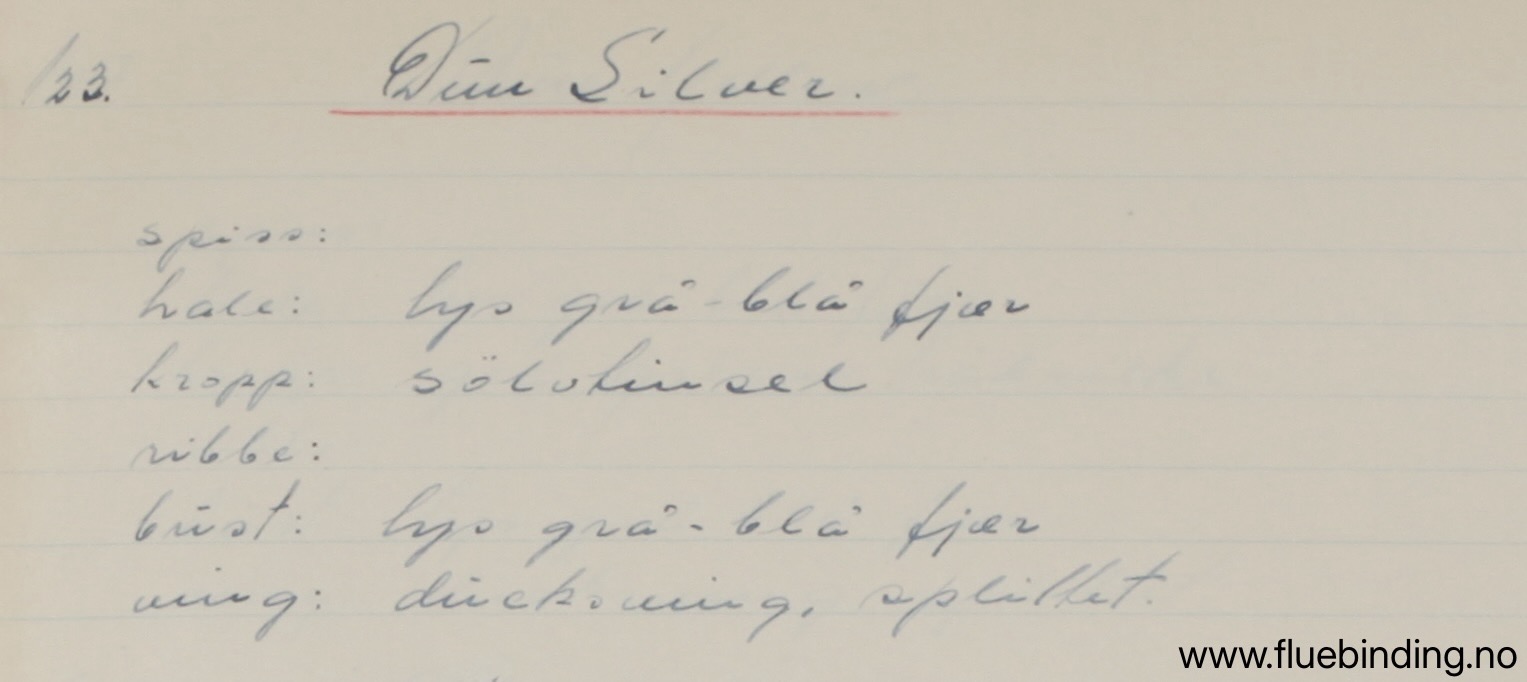 123. Dun Silver.
spiss:
hale: lys grå-blå fjær
kropp: sölvtinsel
ribbe:
bust: lys grå-blå fjær
ving: duck.ving, splittet.
www.fluebinding.no